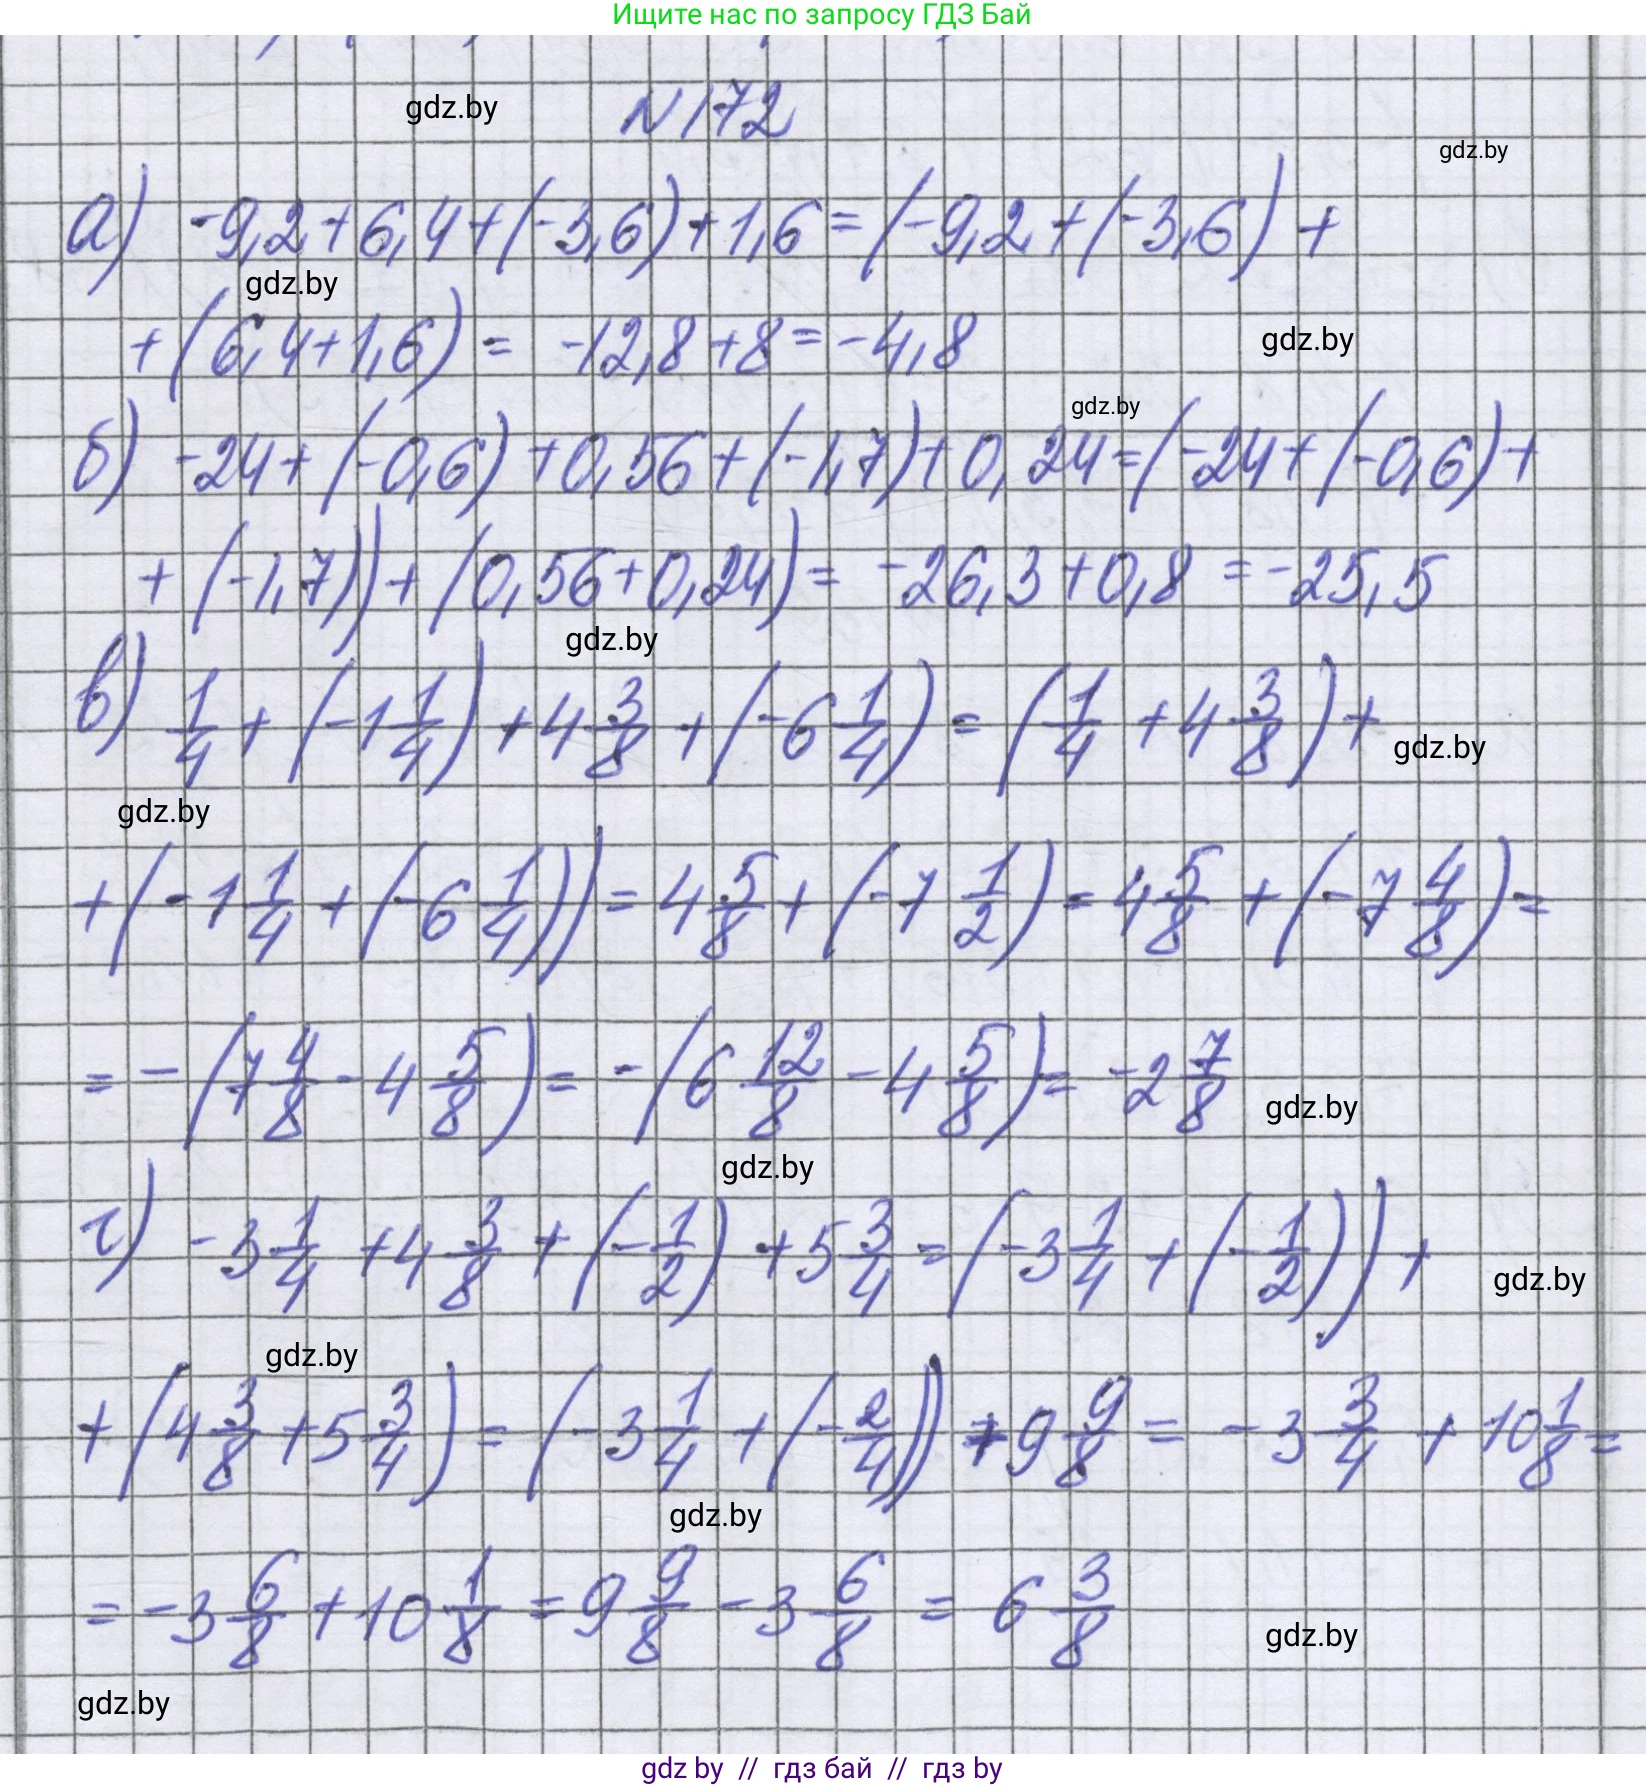 Ищите нас по запросу ГДЗ Бай
gdz.by N172
gdz.by
а) -9,2+6,4+(-3,6)+1,6=(-9,2+(-3,6)+
gdz.by
+(6,4+1,6)= -12,8+8=-4,8
gdz.by
gdz.by
б) -24+(-0,6)+0,56+(-1,7)+0,24=(-24+(-0,6)+
+(-1,7))+(0,56+0,24)= -26,3+0,8=-25,5
gdz.by
в) 1/4+(-1 1/4)+4 3/8+(-6 1/4)=(1/4+4 3/8)+
gdz.by
gdz.by
+(-1 1/4+(-6 1/4))=4 5/8+(-7 1/2)=4 5/8+(-7 4/8)=
=-(7 4/8-4 5/8)=-(6 12/8-4 5/8)=-2 7/8
gdz.by
gdz.by
г) -3 1/4+4 3/8+(-1/2)+5 3/4=(-3 1/4+(-1/2))+
gdz.by
gdz.by
+(4 3/8+5 3/4)=(-3 1/4+(-2/4))+9 9/8=-3 3/4+10 1/8=
gdz.by
=-3 6/8+10 1/8=9 9/8-3 6/8=6 3/8
gdz.by
gdz.by
gdz by // гдз бай // гдз by